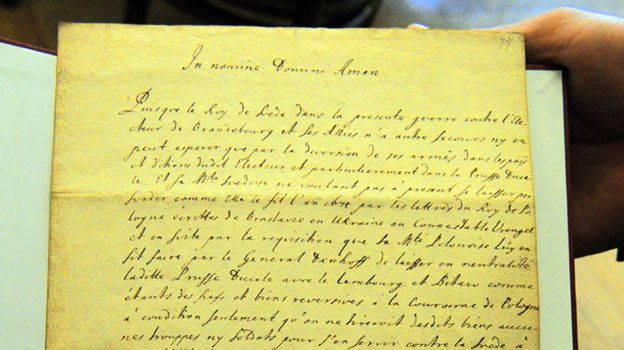 In nomine Domini Amen.
Puisque le Roy de Suède dans la presente guerre contre l'Ele
cteur de Brandebourg et ses Allies n'a autre secours ny en
peut esperer que par la diversion de ses armées dans les païs
et dudit Electeur et particulierement dans la Prusse Duca
le. Et sa Mté Suedoise ne voulant pas à present se laisser per
suader comme Elle le fit l'an par les lettres du Roy de Po
logne écrittes de Braslavie en Ukraine au Connestable Wrangel
et en suite par la requisition que sa Mté Polonoise luy en
fit faire par le General Danhoff de laisser en neutralité
ladite Prusse Ducale avec le Lambourg et Bitaw comme
étants des fiefs et biens reversives à la Couronne de Pologne
à condition seulement qu'on ne tireroit desdits biens aucu
nes trouppes ny soldats pour s'en servir contre la Suède à